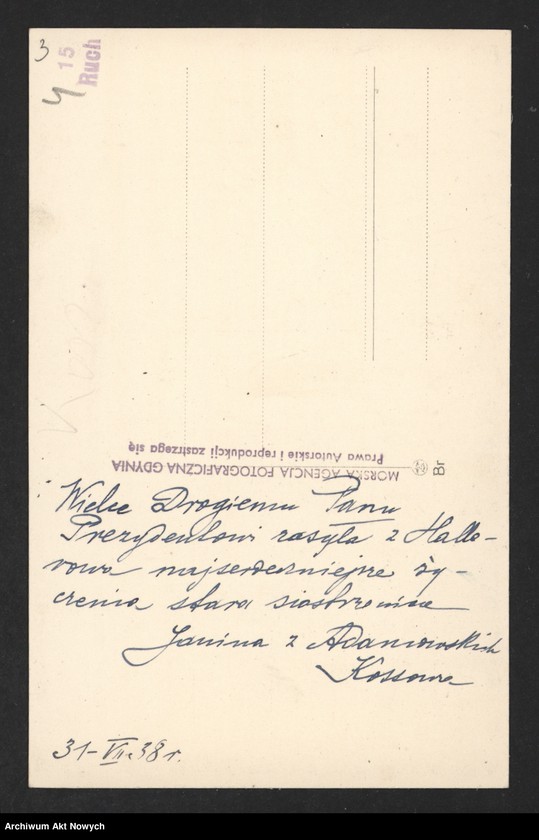 3
4
15
Ruch
MORSKA AGENCJA FOTOGRAFICZNA GDYNIA
Prawa Autorskie i reprodukcji zastrzega się
Br
Wielce Drogiemu Panu
Prezydentowi zasyła z Halle-
rowa najserdeczniejsze ży-
czenia stara siostrzenica
Janina z Adamowskich
Kossowa
31-VII.38 r.
Archiwum Akt Nowych